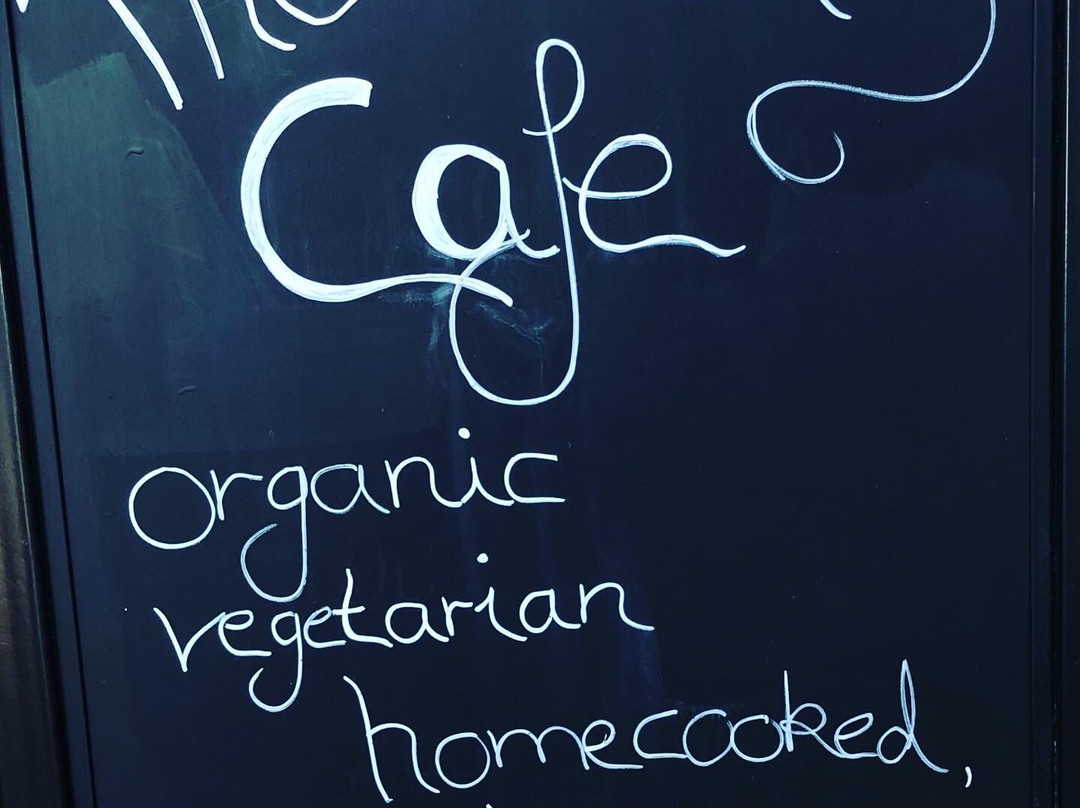 Cafe
organic
vegetarian
homecooked,